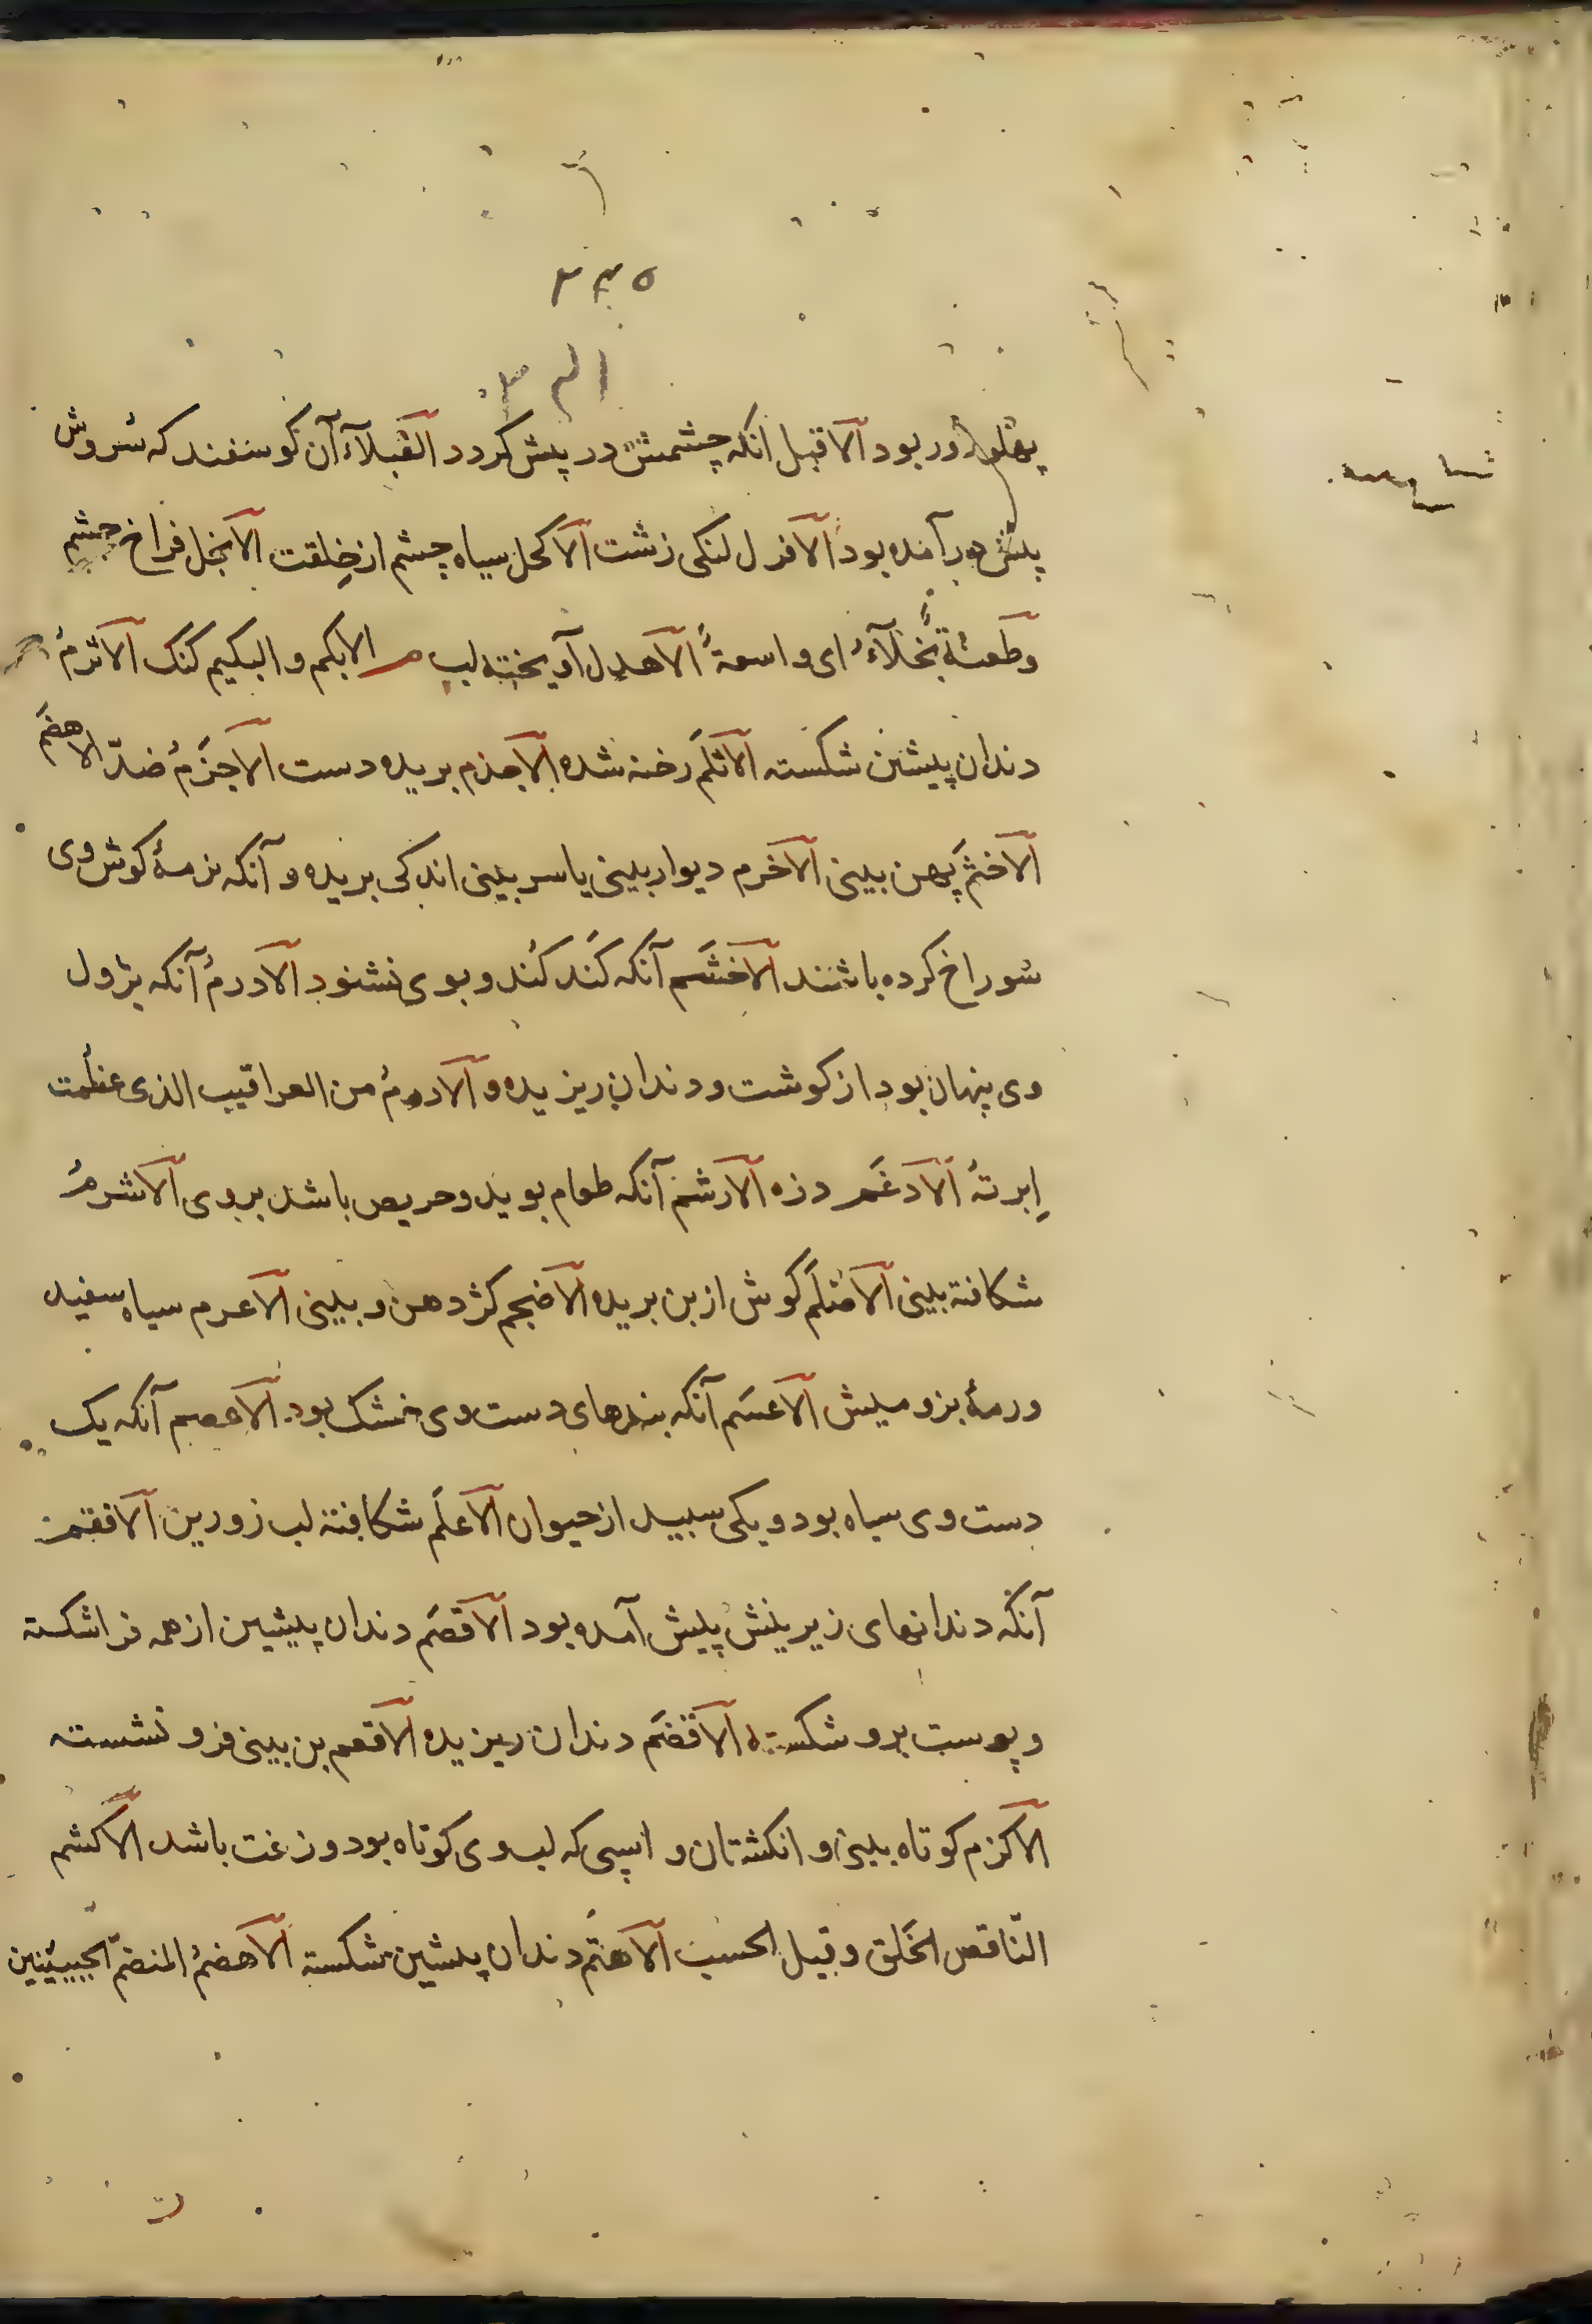 ۳۴۵
پهلو آور بود الاقبل انکه چشمش در پیش کردد القبلآء آن کوسفند که سُروش
پیش در آمده بود الاقزل لنکی زشت الاکحل سیاه چشم از خِلقت الانجل فراخ چشم
وطعنة نجلآءُ ای واسعةً الاهدل آویخته لب م الابکم و البکیم کنک الاثرمُ
دندان پیشین شکسته الاثلَم رخنه شده الاجذم بریده دست الاجزَمُ ضدّ الاهضَم
الاخثَم پَهن بینی الاخرم دیوار بینی یا سر بینی اندکی بریده و آنکه نرمهٔ کوش وی
سُوراخ کرده باشند الاخشَم آنکه کَند کُند و بوی نشنود الادرمُ آنکه بژول
وی پنهان بود از کوشت و دندان ریزیده و الادرمُ من العراقیب الذی عظُمت
اِبرتهُ الادغَم دزه الارشم آنکه طعام بوید و حریص باشد بر وی الاشرمُ
شکافته بینی الاصلَم کوش از بن بریده الاضجم کژ دهن و بینی الاعرم سیاه سفید
ورمهٔ بز و میش الاعسَم آنکه بندهای دست وی خشک بود الاعصم آنکه یک
دست وی سیاه بود و یکی سپید از حیوان الاعلَم شکافته لب زورین الافقم
آنکه دندانهای زیرینش پیش آمده بود الاقصَم دندان پیشین از همه فراشکسته
و پوست برو شکسته الاقضَم دندان ریزیده الاقعم بن بینی فرو نشسته
الاکزم کوتاه بینی و انکشتان و اسپی که لب وی کوتاه بود و زغت باشد الاکشم
النّاقص الخَلق و قیل الحسب الاهتَم دندان پیشین شکسته الاهضمُ المنضمّ الجنبَین